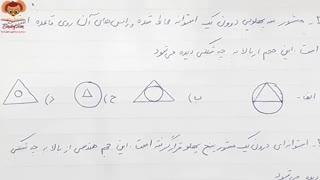 منشور سه پهلویی درون یک استوانه محاط شده و راس های آن روی قاعده
است. این حجم از بالا به چه شکلی دیده می شود
الف- ب) ج) د)
استوانه ای درون یک منشور پنج پهلو قرار گرفته است. این حجم هندسی از بالا به چه شکلی
دیده می شود